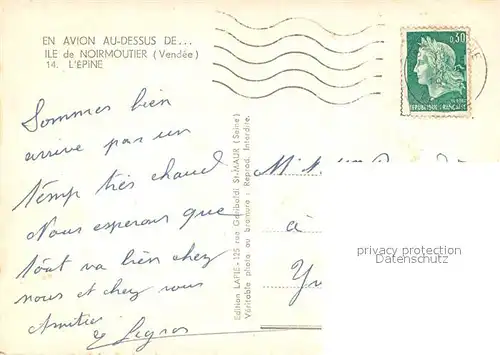 EN AVION AU-DESSUS DE...
ILE de NOIRMOUTIER (Vendée)
14. L'ÉPINE
0,30
REPUBLIQUE FRANÇAISE
Sommes bien
arrive par un
temp très chaud
Nous esperons que
tout va bien chez
nous et chez vous
Amitié
Legros
Edition LAPIE - 125 rue Garibaldi St-MAUR (Seine)
Véritable photo au bromure : Reprod. Interdite.
M
à
privacy protection
Datenschutz